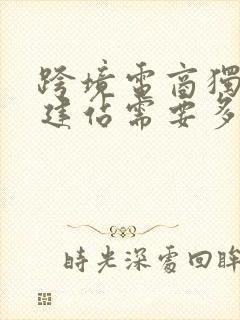 跨境電商獨
建佔需要多
時光深處回眸